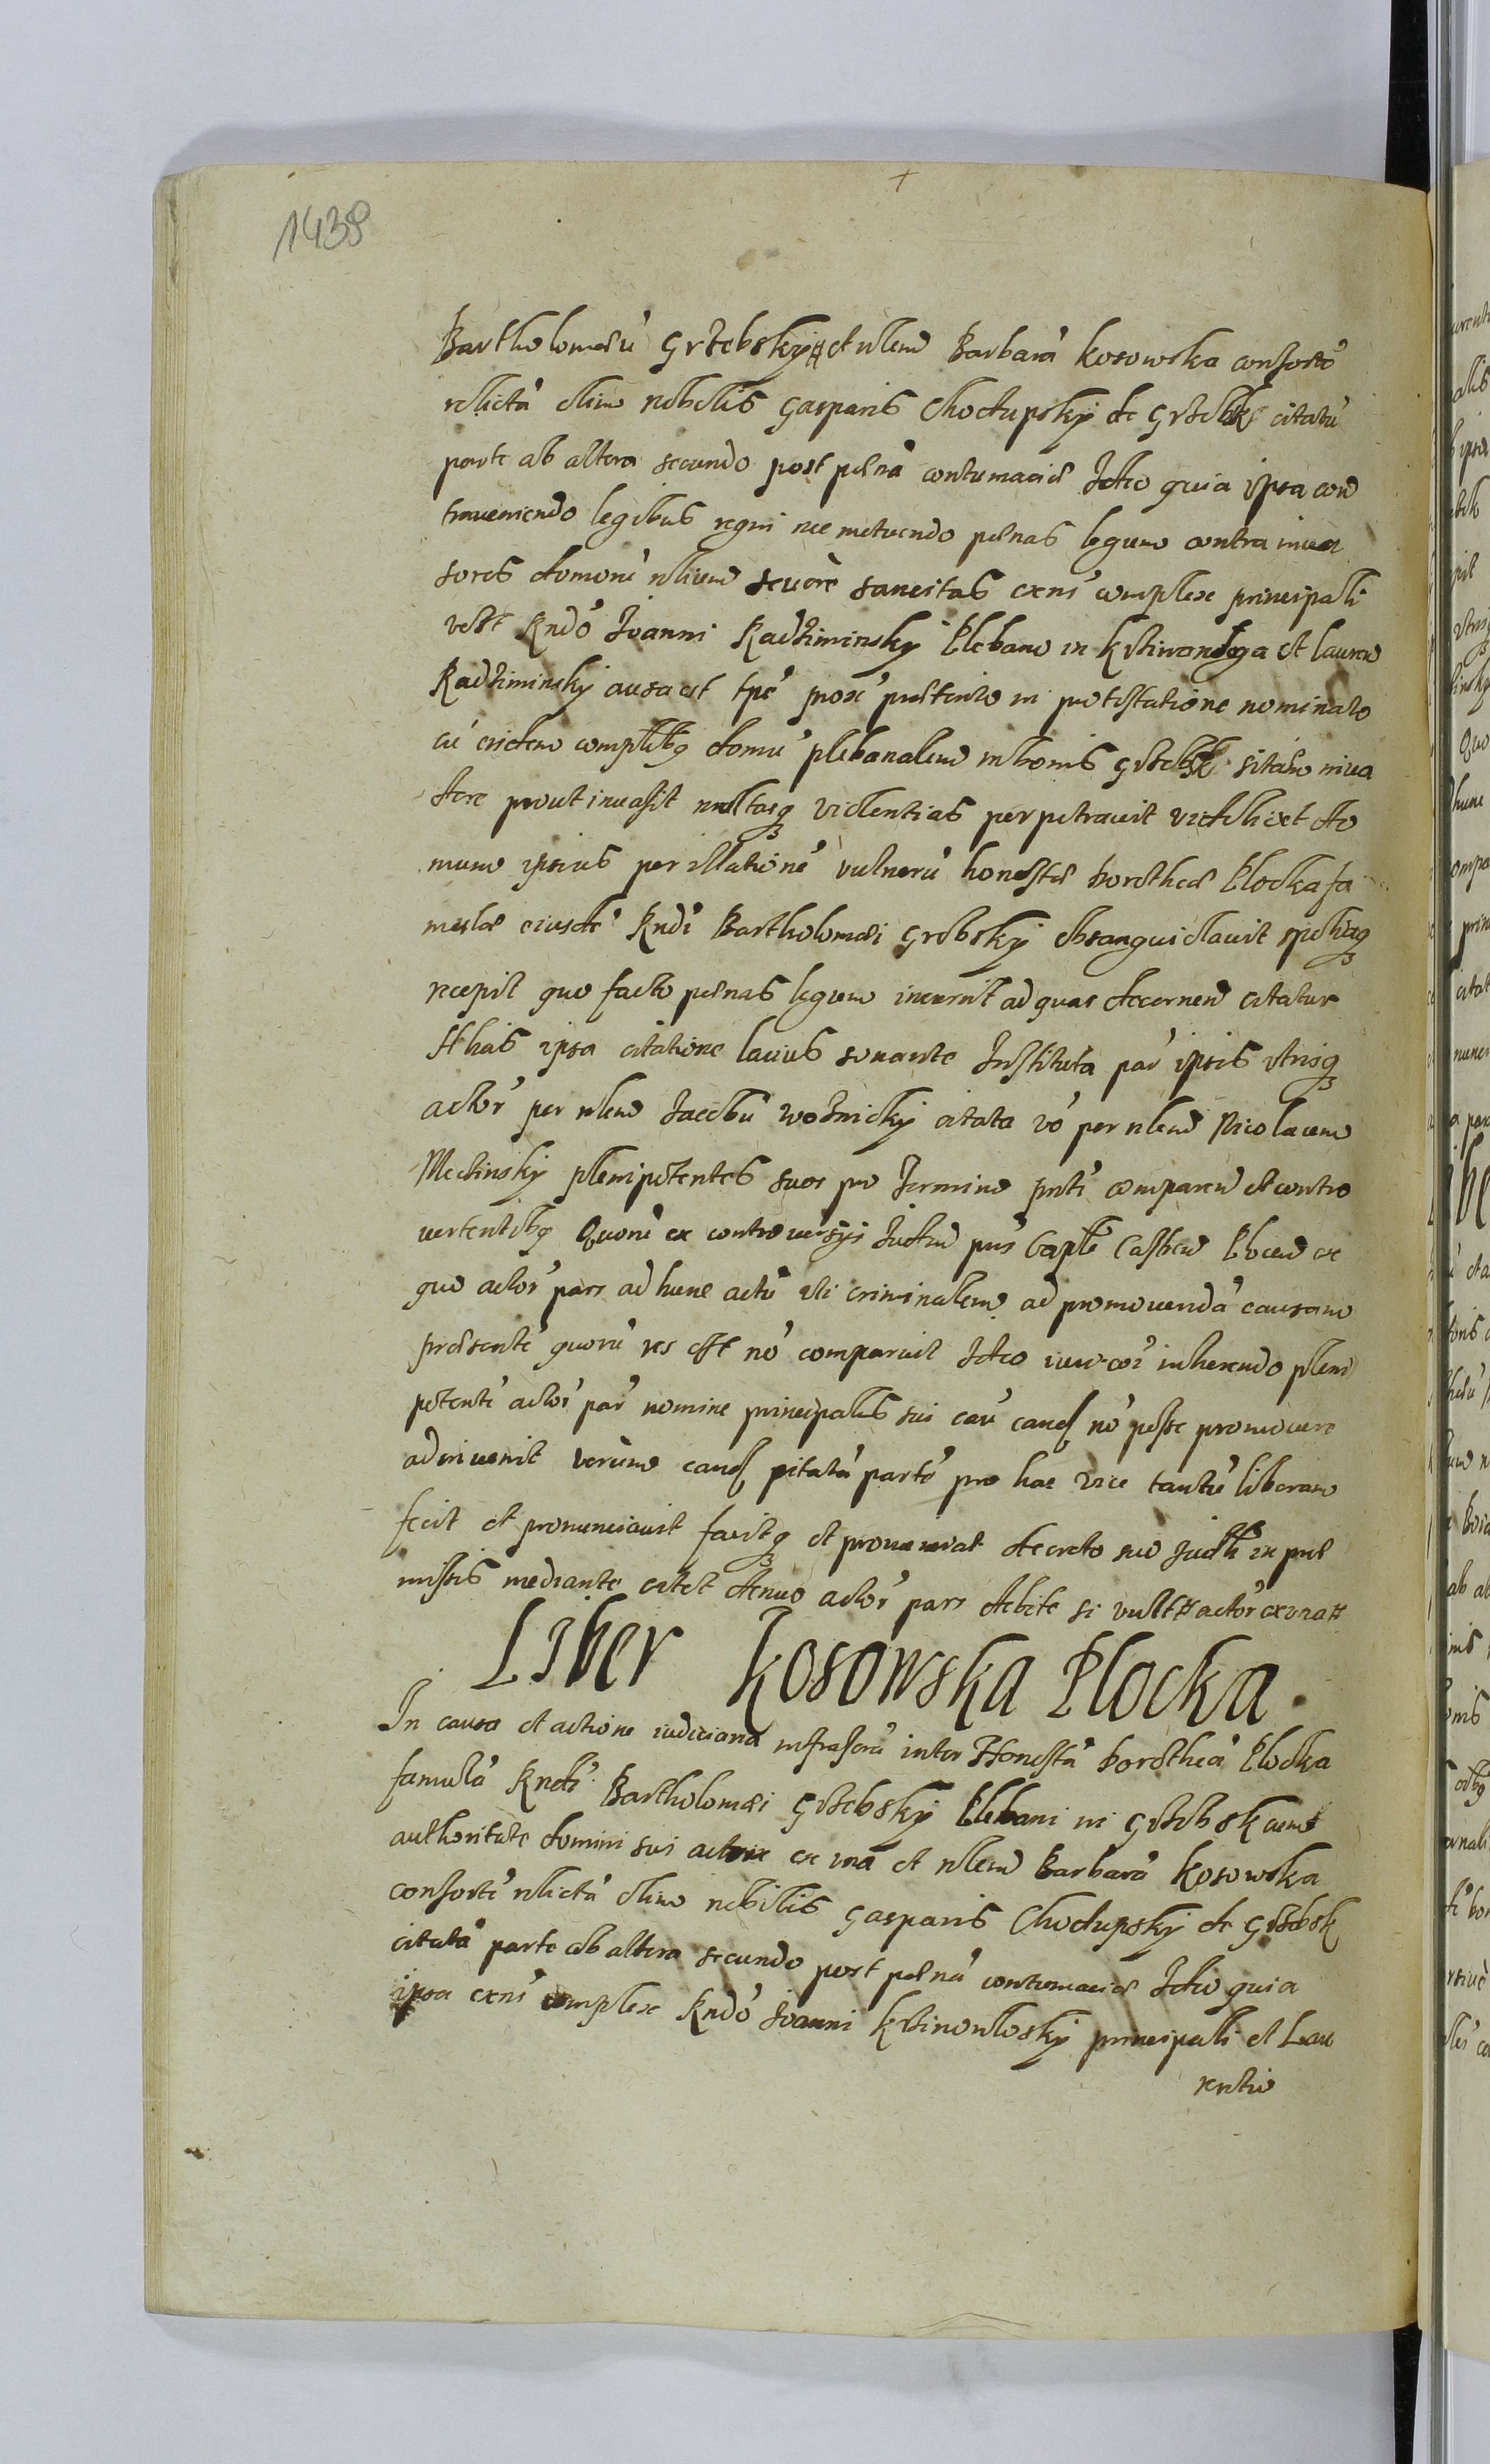 1438
Bartholomeũ Grzebsky # et nlem Barbarã Kosowska consortẽ
relictã olim nobilis Gasparis Choctupsky de Grzebsk citatã
parte ab altera secundo post penã contumaciæ Ideo quia ipsa con
traveniendo legibus regni nec metuendo penas legum contra inva
sores domorũ nlium severè sancitas exñs complex principali
vestr Rndo Joanni Radziminsky Plebano in Krziwonosza et Lauren
Radziminsky ausa est tpe prox̃ præterito in protestatione nominato
cũ eisdem complibq domũ plebanalem in bonis Grzebsk sitam inva
dere prout invasit multasq violentias perpetravit videlicet do
mum ipsius per illationẽ vulnerũ honestæ Dorotheæ Plocka fa
mulæ eiusdẽ Rndi Bartholomæi Grebsky obsanguidavit spoliaq
recepit quo facto penas legum incurrit ad quas decernend citatur
ipsa citatione latius sonante Instituta par ipsis utrisq
actor per nlem Jacobũ Woznicky citata vo per nlem Nicolaum
Meclinsky plenipotentes suos pro Termino pnti comparen et contro
vertentibq Quorũ ex controversÿs Judm pns Capte Castren Plocen ex
quo actor pars ad hunc actũ uti criminalem ad promovendã causam
præsente quorũ res est nõ comparuit Ideo inherendo pleni
potenti actor par nomine principalis sui eã cam nõ posse promovere
adinvenit verùm eand citatã partẽ pro hac vice tantũ liberam
fecit et pronunciavit facitq et pronunciat decreto suo Judli in præ
missis mediante citet denuo actor pars debite si vult # actor ex una #
Liber Kosowska Plocka.
In causa et actione iudiciaria infrascrã inter Honestã Dorotheã Plocka
famulã Rndi Bartholomæi Grzebsky Plebani in Grzebsk cum
authoritate domini sui actorẽ ex una et nlem Barbarã Kosowska
consortẽ relictã olim nobilis Gasparis Choctupsky de Grzebsk
citatã parte ab altera secundo post penã contumaciæ Ideo quia
ipsa exñs complex Rndo Joanni Krzinowlosky principali et Lau
rentio